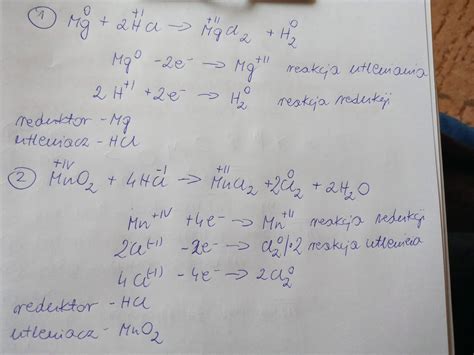 ① Mg⁰ + 2H⁺ᴵCl → Mg⁺ᴵᴵCl₂ + H₂⁰
Mg⁰ -2e⁻ → Mg⁺ᴵᴵ reakcja utleniania
2H⁺ᴵ +2e⁻ → H₂⁰ reakcja redukcji
reduktor - Mg
utleniacz - HCl
② Mn⁺ᴵⱽO₂ + 4HCl⁻ᴵ → Mn⁺ᴵᴵCl₂ +2Cl₂⁰ + 2H₂O
Mn⁺ᴵⱽ +4e⁻ → Mn⁺ᴵᴵ reakcja redukcji
2Cl⁽⁻ᴵ⁾ -2e⁻ → Cl₂⁰ /·2 reakcja utlenienia
4Cl⁽⁻ᴵ⁾ -4e⁻ → 2Cl₂⁰
reduktor - HCl
utleniacz - MnO₂